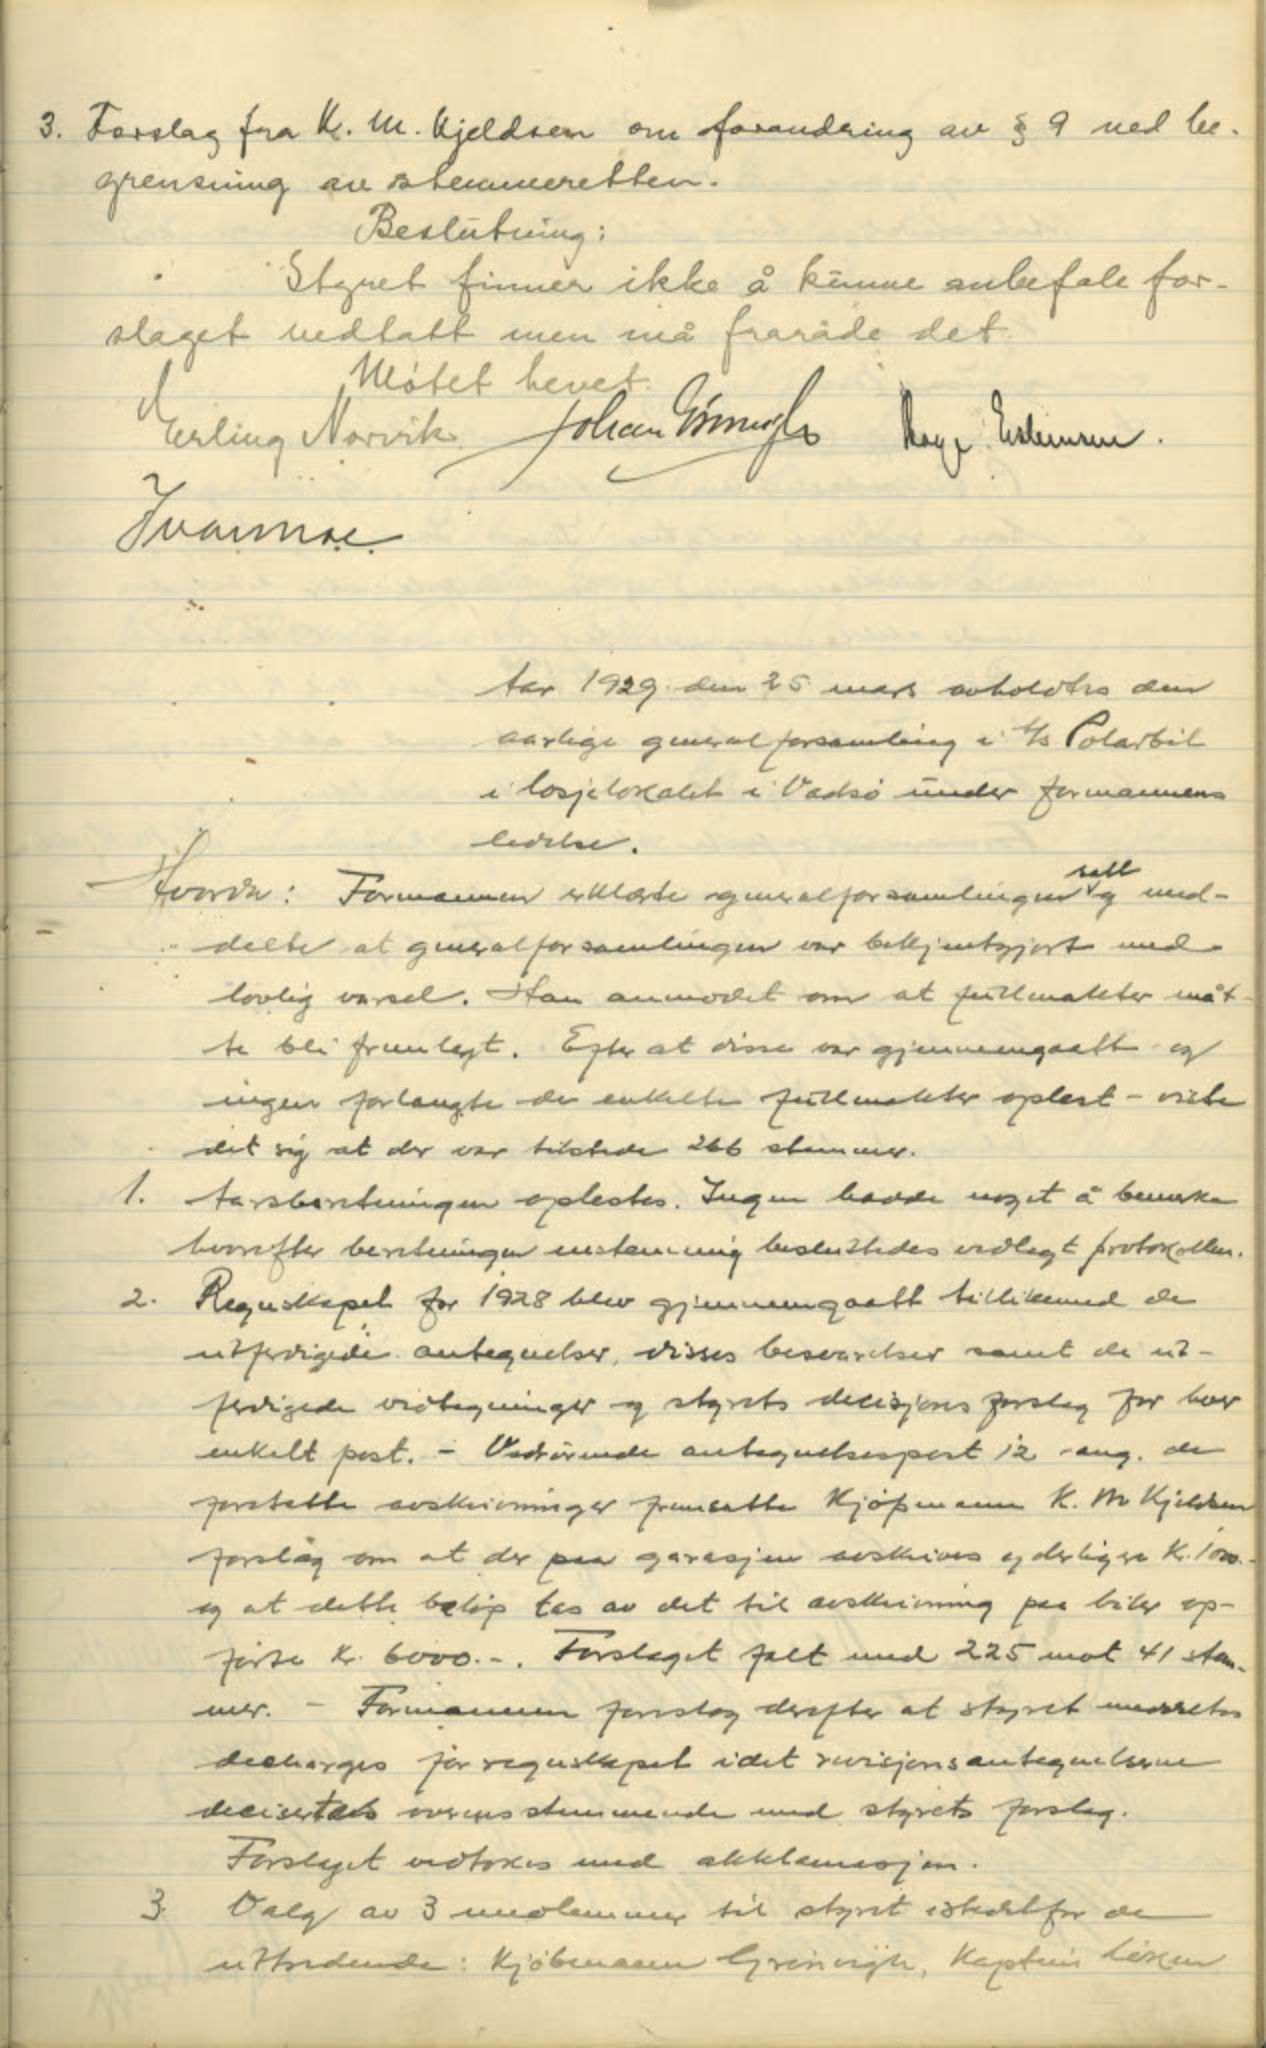 3. Forslag fra K. M. Kjeldsen om forandring av § 9 ved be-
grensning av stemmeretten.
Beslutning:
Styret finner ikke å kunne anbefale for-
slaget vedtatt men må fraråde det
Møtet hevet.
Erling Norvik Johan Grønvigh Aage Esbensen.
Ivar Moe.
Aar 1929 den 25 mars avholdtes den
aarlige generalforsamling i A/S Polarbil
i losjelokalet i Vadsø under formannens
ledelse.
Hvorda: Formannen erklærte generalforsamlingen satt og med-
delte at generalforsamlingen var bekjentgjort med
lovlig varsel. Han anmodet om at fullmakter måt-
te bli fremlagt. Efter at disse var gjennemgaatt og
ingen forlangte de enkelte fullmakter oplest - viste
det sig at der var tilstede 266 stemmer.
1. Aarsberetningen oplestes. Ingen hadde noget å bemerke
hvorefter beretningen enstemmig besluttedes vedlagt protokollen.
2. Regnskapet for 1928 blev gjennemgaatt tillikemed de
utferdigede antegnelser, disses besvarelser samt de ut-
ferdigede vedtegninger og styrets decisjonsforslag for hver
enkelt post. - Vedrørende antegnelsespost 12 ang. de
foretatte avskrivninger fremsatte Kjøpmann K. M Kjeldsen
forslag om at der paa garasjen avskrives yderligere Kr. 1000.-
og at dette beløp tas av det til avskrivning paa biler op-
førte Kr. 6000.-. Forslaget falt med 225 mot 41 stem-
mer. - Formannen foreslog derefter at styret meddeltes
decharges for regnskapet idet revisjonsantegnelsene
decisertes overensstemmende med styrets forslag.
Forslaget vedtokes med akklamasjon.
3 Valg av 3 medlemmer til styret istedetfor de
uttredende: Kjøbmann Grønvigh, Kaptein Løken